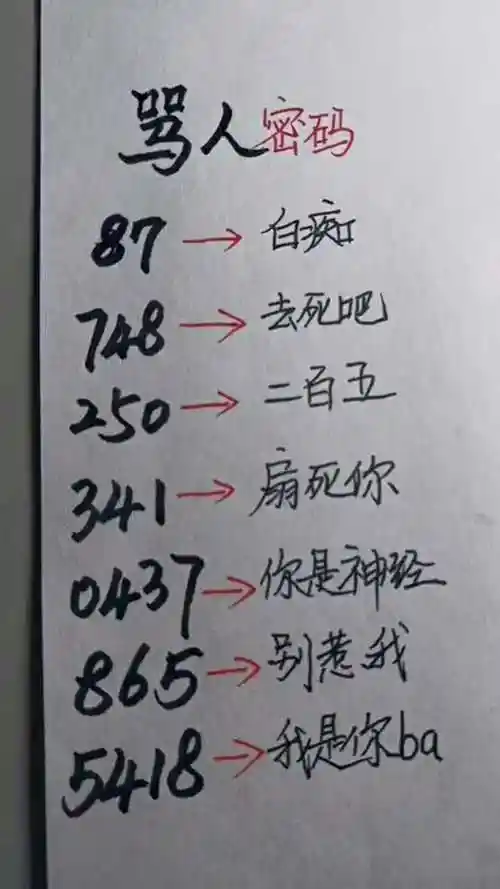 骂人密码
87→白痴
748→去死吧
250→二百五
341→扇死你
0437→你是神经
865→别惹我
5418→我是你ba